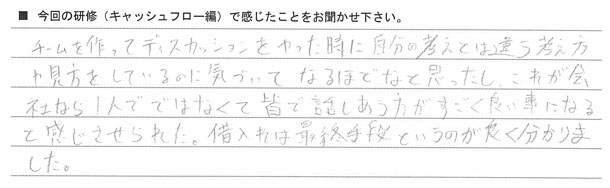 ■ 今回の研修（キャッシュフロー編）で感じたことをお聞かせ下さい。
チームを作ってディスカッションをやった時に自分の考えとは違う考え方
や見方をしているのに気づいてなるほどなと思ったし、これが会
社なら1人でではなくて皆で話しあう方がすごく良い事になる
と感じさせられた。借入れは最終手段というのが良く分かりま
した。